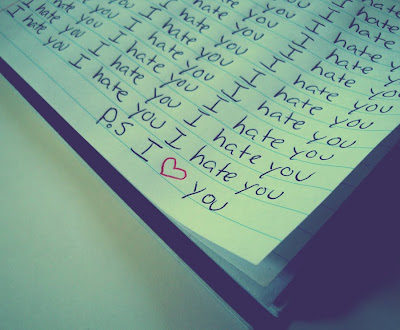 I hate you I hate you I hate you
I hate you I hate you I hate you
I hate you I hate you I hate you
I hate you I hate you I hate you
I hate you I hate you I hate you
I hate you I hate you I hate you
I hate you I hate you
P.S I ♡ you